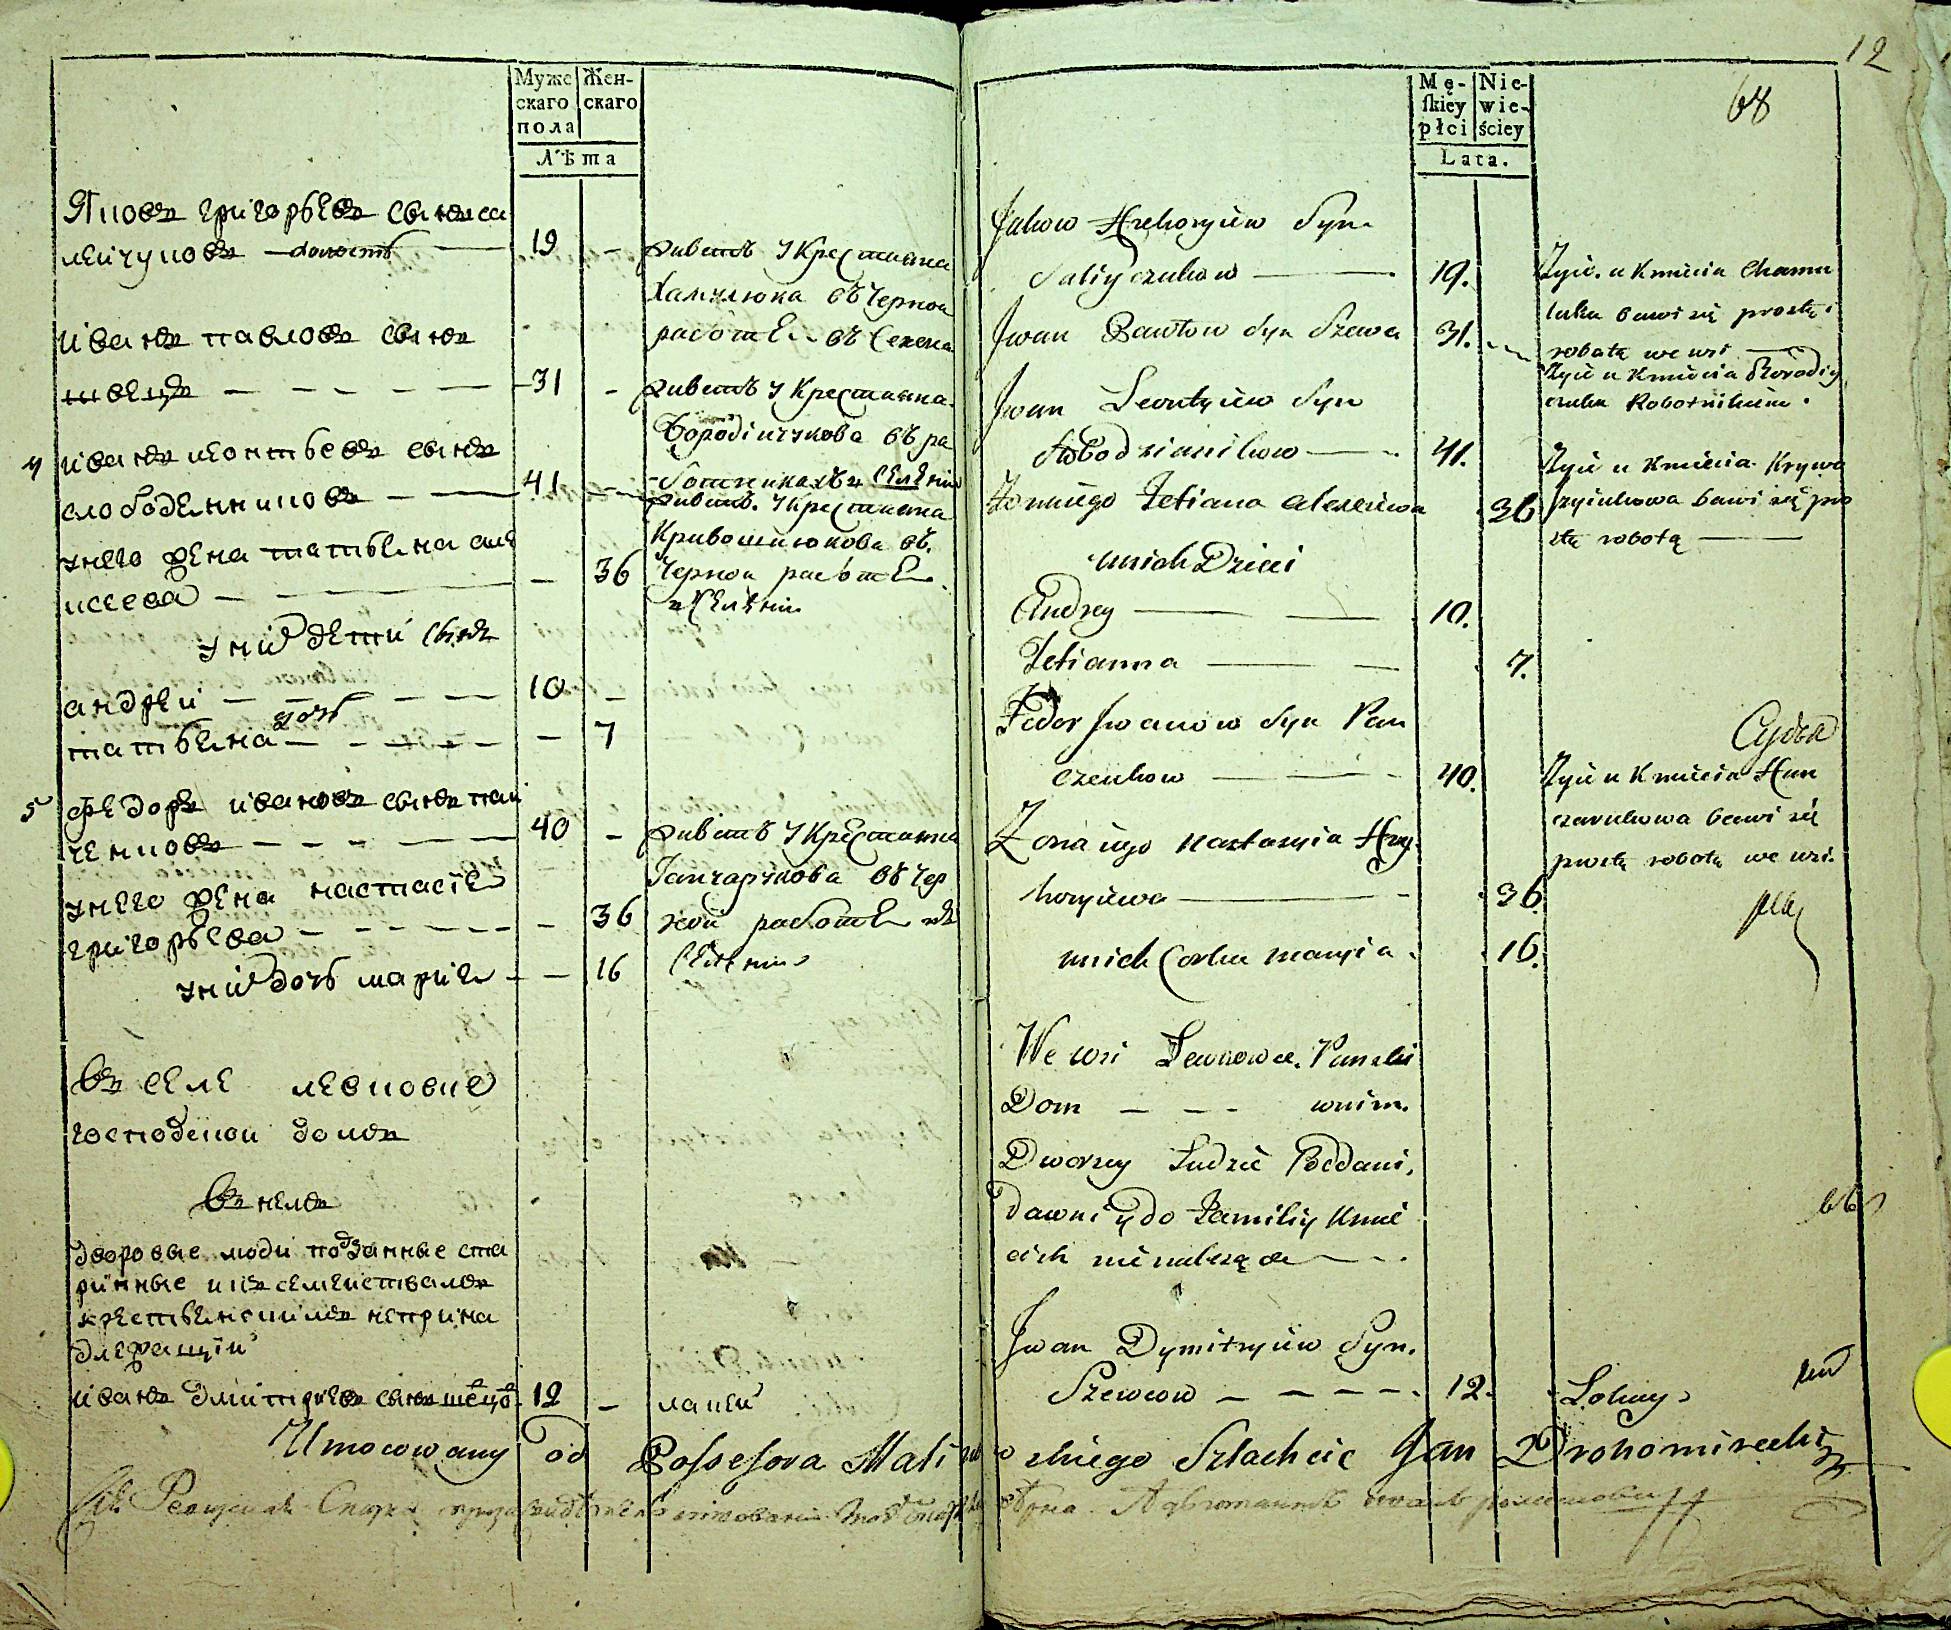 Муже
скаго
пола
Жен-
скаго
Лѣта
Яковъ григорьевъ сынъ са
лейчуковъ 19 - живетъ у Крестьянина
Хамулюка въ черной
работе въ Селени
иванъ павловъ сынъ
швецъ - 31 - живетъ у Крестьянина
Бородійчукова въ ра
ботникахъ в Селении
4 иванъ леонтьевъ сынъ
слободенниковъ - 41 - живетъ у Крестьянина
Кривошиюкова въ
Черной работе
в Селении
у него жена татьяна але
ксеева - 36
у них дети сынъ
андрей - 10 -
татьяна дочь - 7
5 федоръ ивановъ сынъ пан
ченковъ - 40 - живетъ у Крестьянина
Ганчарукова въ чер
ной работе въ
Селении
у него жена настасія
григорьева - 36
у них дочь марія - 16
Въ селе левковке
господской домъ
Въ немъ
дворовые люди подданные ста
ринные и къ семействамъ
крестьянскимъ непринад
длежащіи
иванъ дмитріевъ сынъ шевцовъ 12 - лакей
12
68
Mę-
skiey
płci
Nie-
wie-
ściey
Lata.
Jakow Hrehoryiew Syn
Saliyczukow 19. Żyie u Kmiecia Chamu
luka bawi się prostą
robotą we wsi
Jwan Pawłow Syn Szewc 31. Żyie u Kmiecia Borodiy
czuka Robotnikiem.
Jwan Leontyiew Syn
Słobodzianikow 41. Żyie u Kmiecia Krywo
szyiukowa bawi się pro
stą robotą
Żona iego Tetiana Alexiiewa 36
u nich Dzieci
Andrey 10.
Tetianna 7.
Fedor Jwanow Syn Pan
czenkow 40. Żyie u Kmiecia Han
czarukowa bawi się
prostą robotą we wsi.
Żona iego Nastasyia Hry
horyiewa 36.
u nich Corka Maryia 16.
We wsi Lewkowce Panski
Dom - - - w nim.
Dworscy Ludzie Poddani
dawni y do Familiy Kmie
cich nie należące
Jwan Dymitryiew Syn.
Szewcow - - - - 12. Lokay
Umocowany od Possesora Malinowskiego Szlachcic Jan Drohomirecki